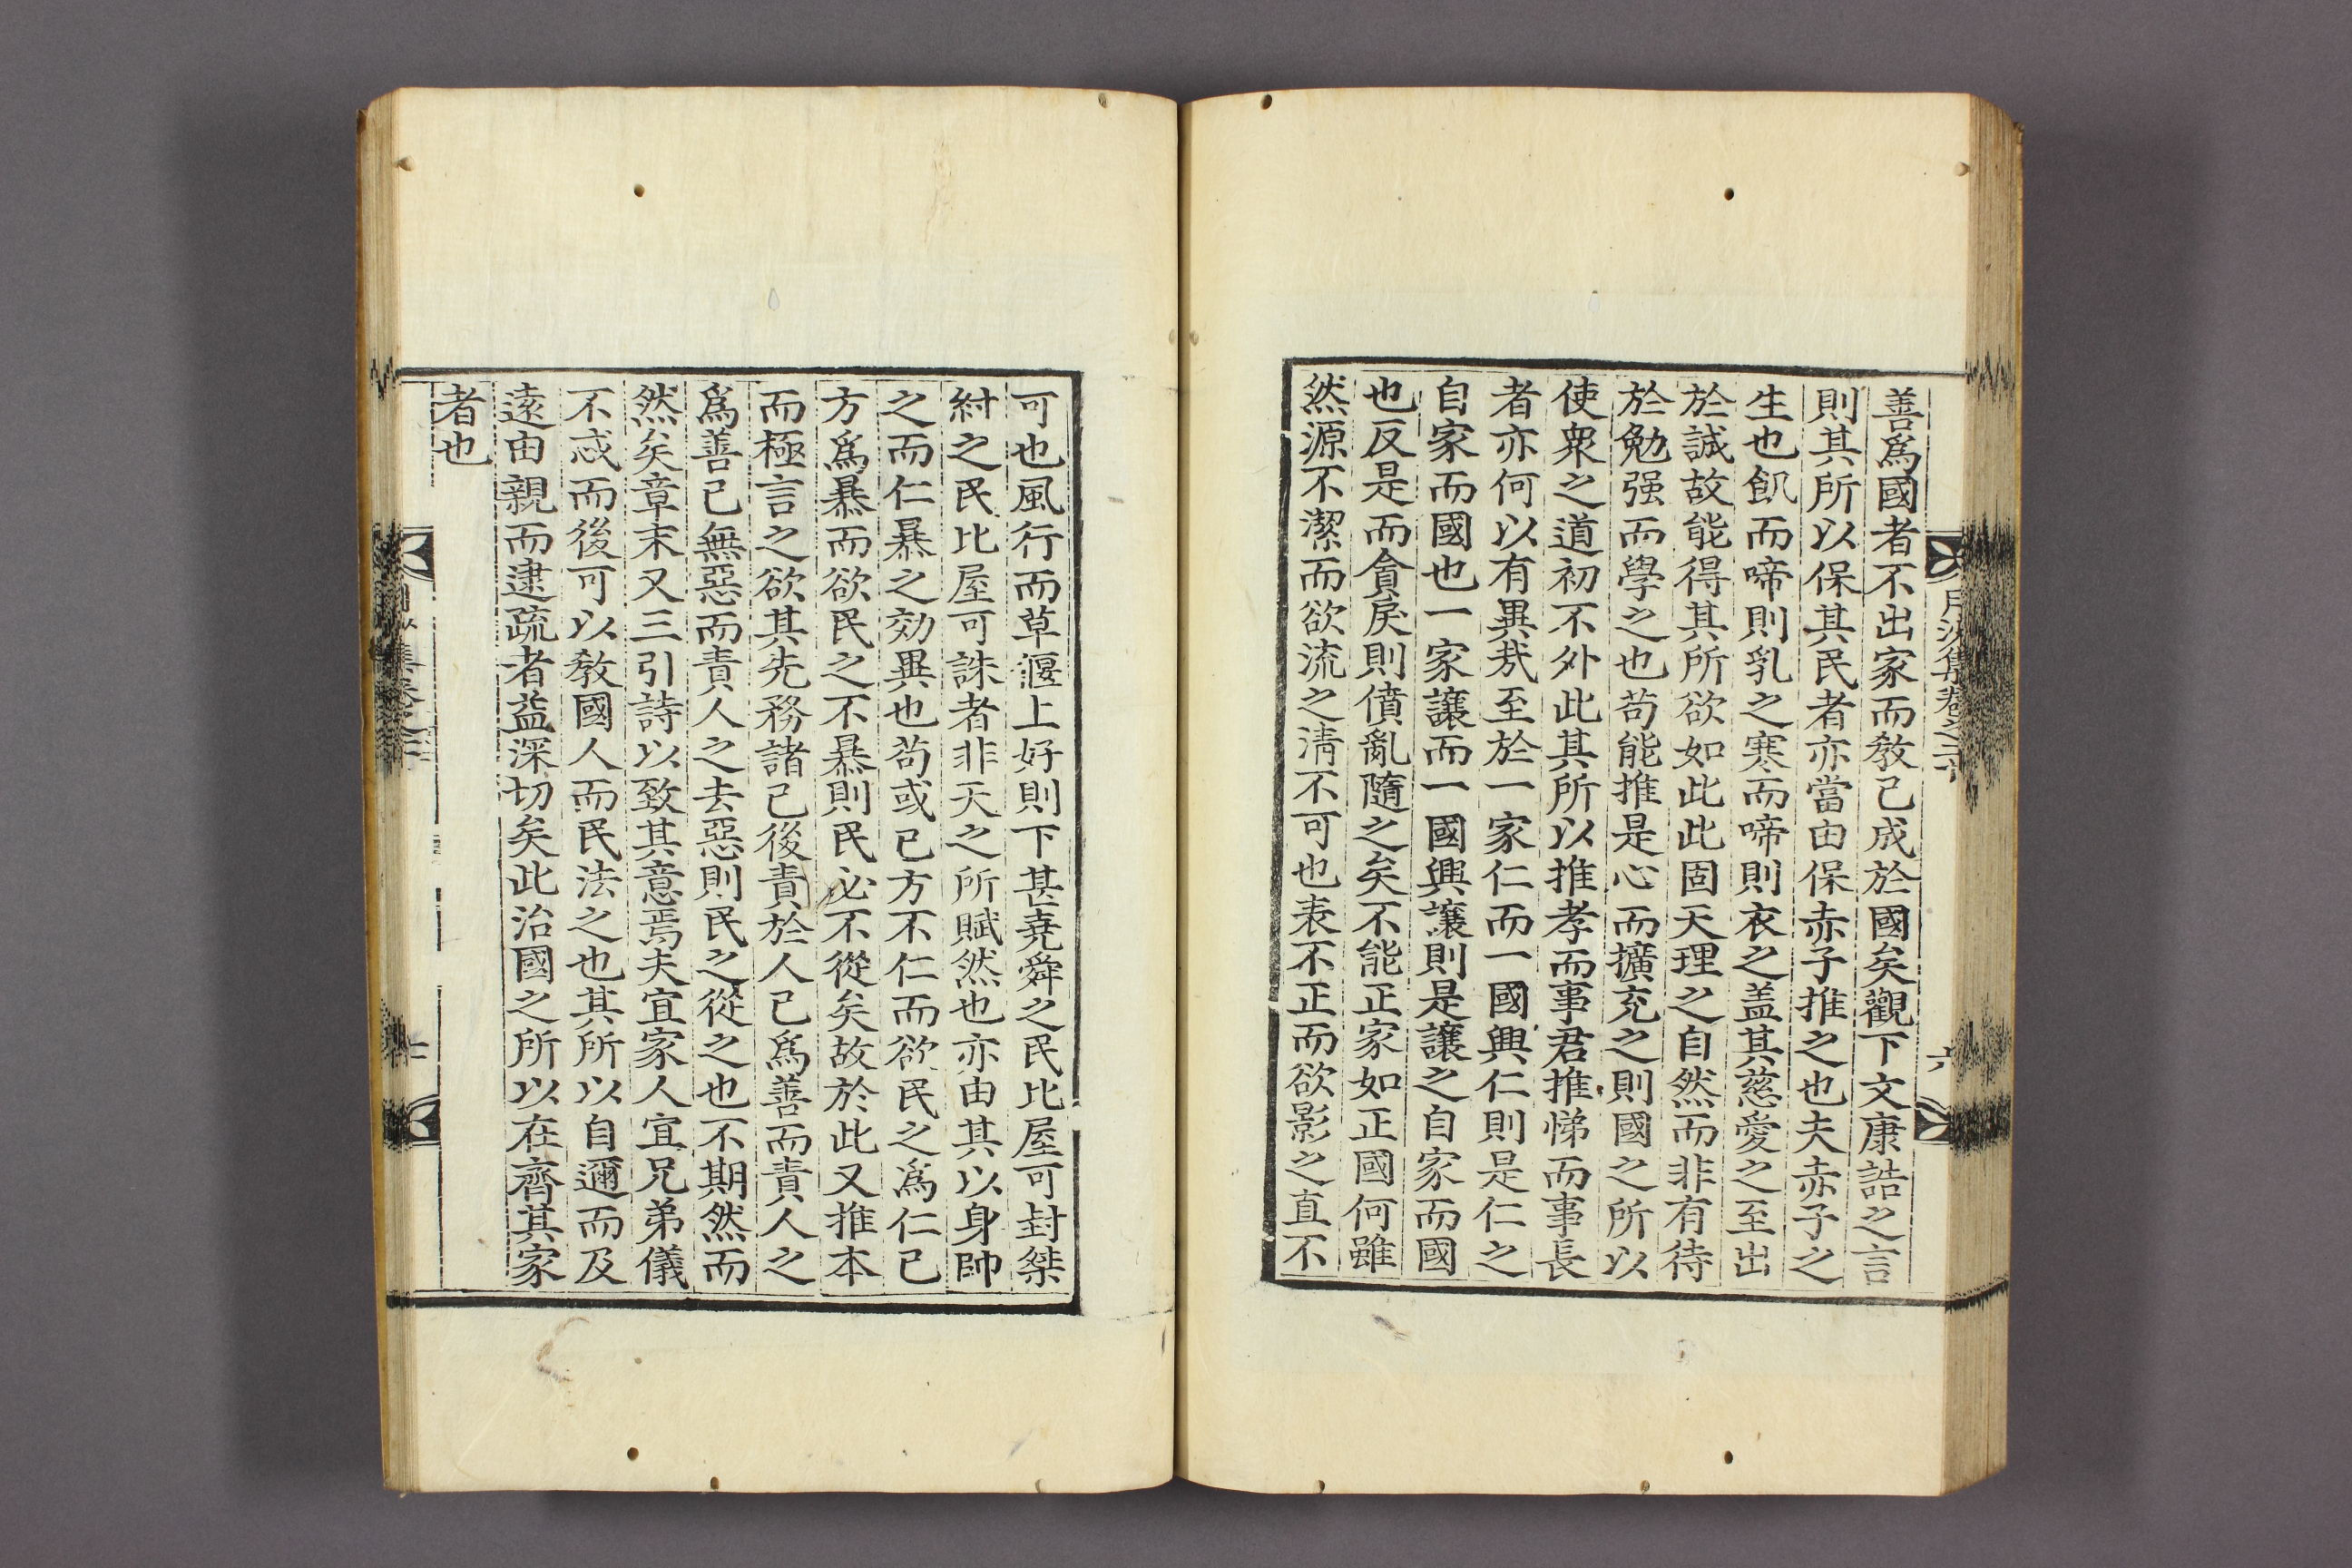 善爲國者不出家而敎已成於國矣觀下文康誥之言
則其所以保其民者亦當由保赤子推之也夫赤子之
生也飢而啼則乳之寒而啼則衣之盖其慈愛之至出
於誠故能得其所欲如此此固天理之自然而非有待
於勉强而學之也苟能推是心而擴充之則國之所以
使衆之道初不外此其所以推孝而事君推悌而事長
者亦何以有異㢤至於一家仁而一國興仁則是仁之
自家而國也一家讓而一國興讓則是讓之自家而國
也反是而貪戾則僨亂隨之矣不能正家如正國何雖
然源不潔而欲流之淸不可也表不正而欲影之直不
月波集卷之二
六
可也風行而草偃上好則下甚堯舜之民比屋可封桀
紂之民比屋可誅者非天之所賦然也亦由其以身帥
之而仁暴之效異也苟或已方不仁而欲民之爲仁已
方爲暴而欲民之不暴則民必不從矣故於此又推本
而極言之欲其先務諸己後責於人已爲善而責人之
爲善已無惡而責人之去惡則民之從之也不期然而
然矣章末又三引詩以致其意焉夫宜家人宜兄弟儀
不忒而後可以敎國人而民法之也其所以自邇而及
遠由親而逮疏者益深切矣此治國之所以在齊其家
者也
集卷之二
七